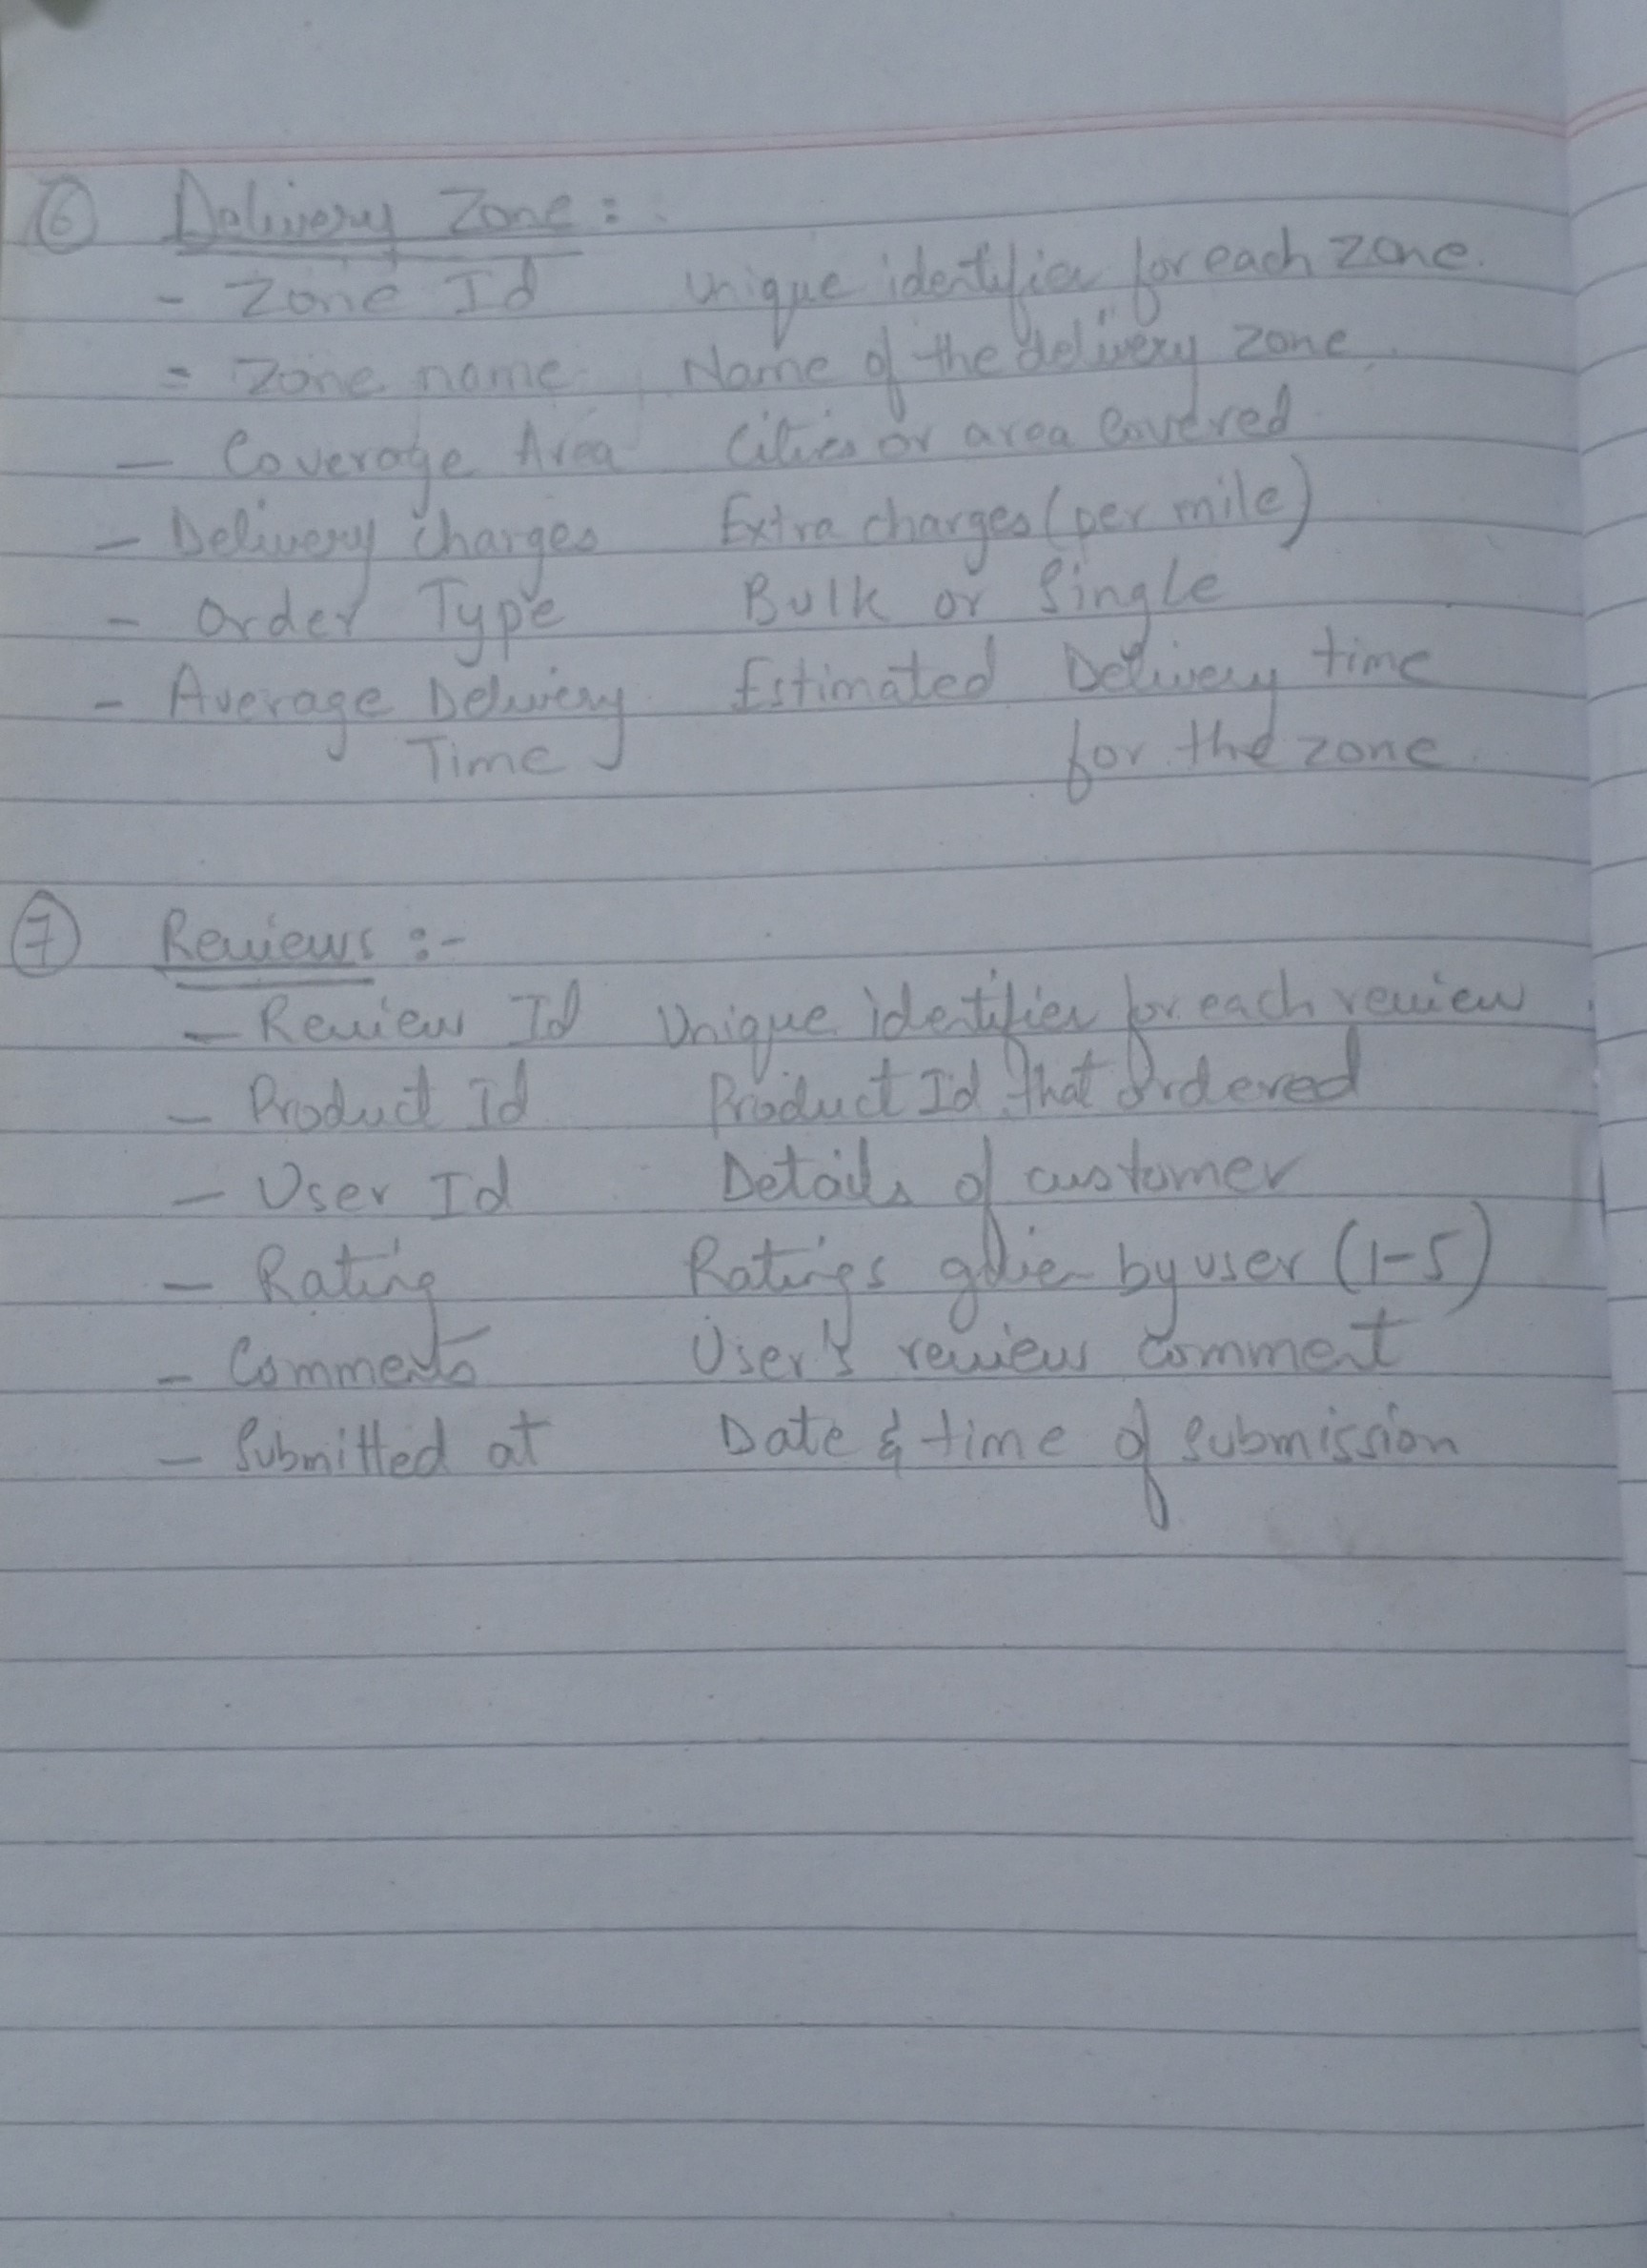 6 Delivery Zone :
- Zone Id Unique identifier for each zone.
= Zone name Name of the delivery zone
- Coverage Area Cities or area covered
- Delivery charges Extra charges (per mile)
- Order Type Bulk or Single
- Average Delivery Estimated Delivery time
Time for the zone
7 Reviews :-
- Review Id Unique identifier for each review
- Product Id Product Id that ordered
- User Id Details of customer
- Rating Ratings by user (1-5)
- Comments User's review comment
- Submitted at Date & time of submission